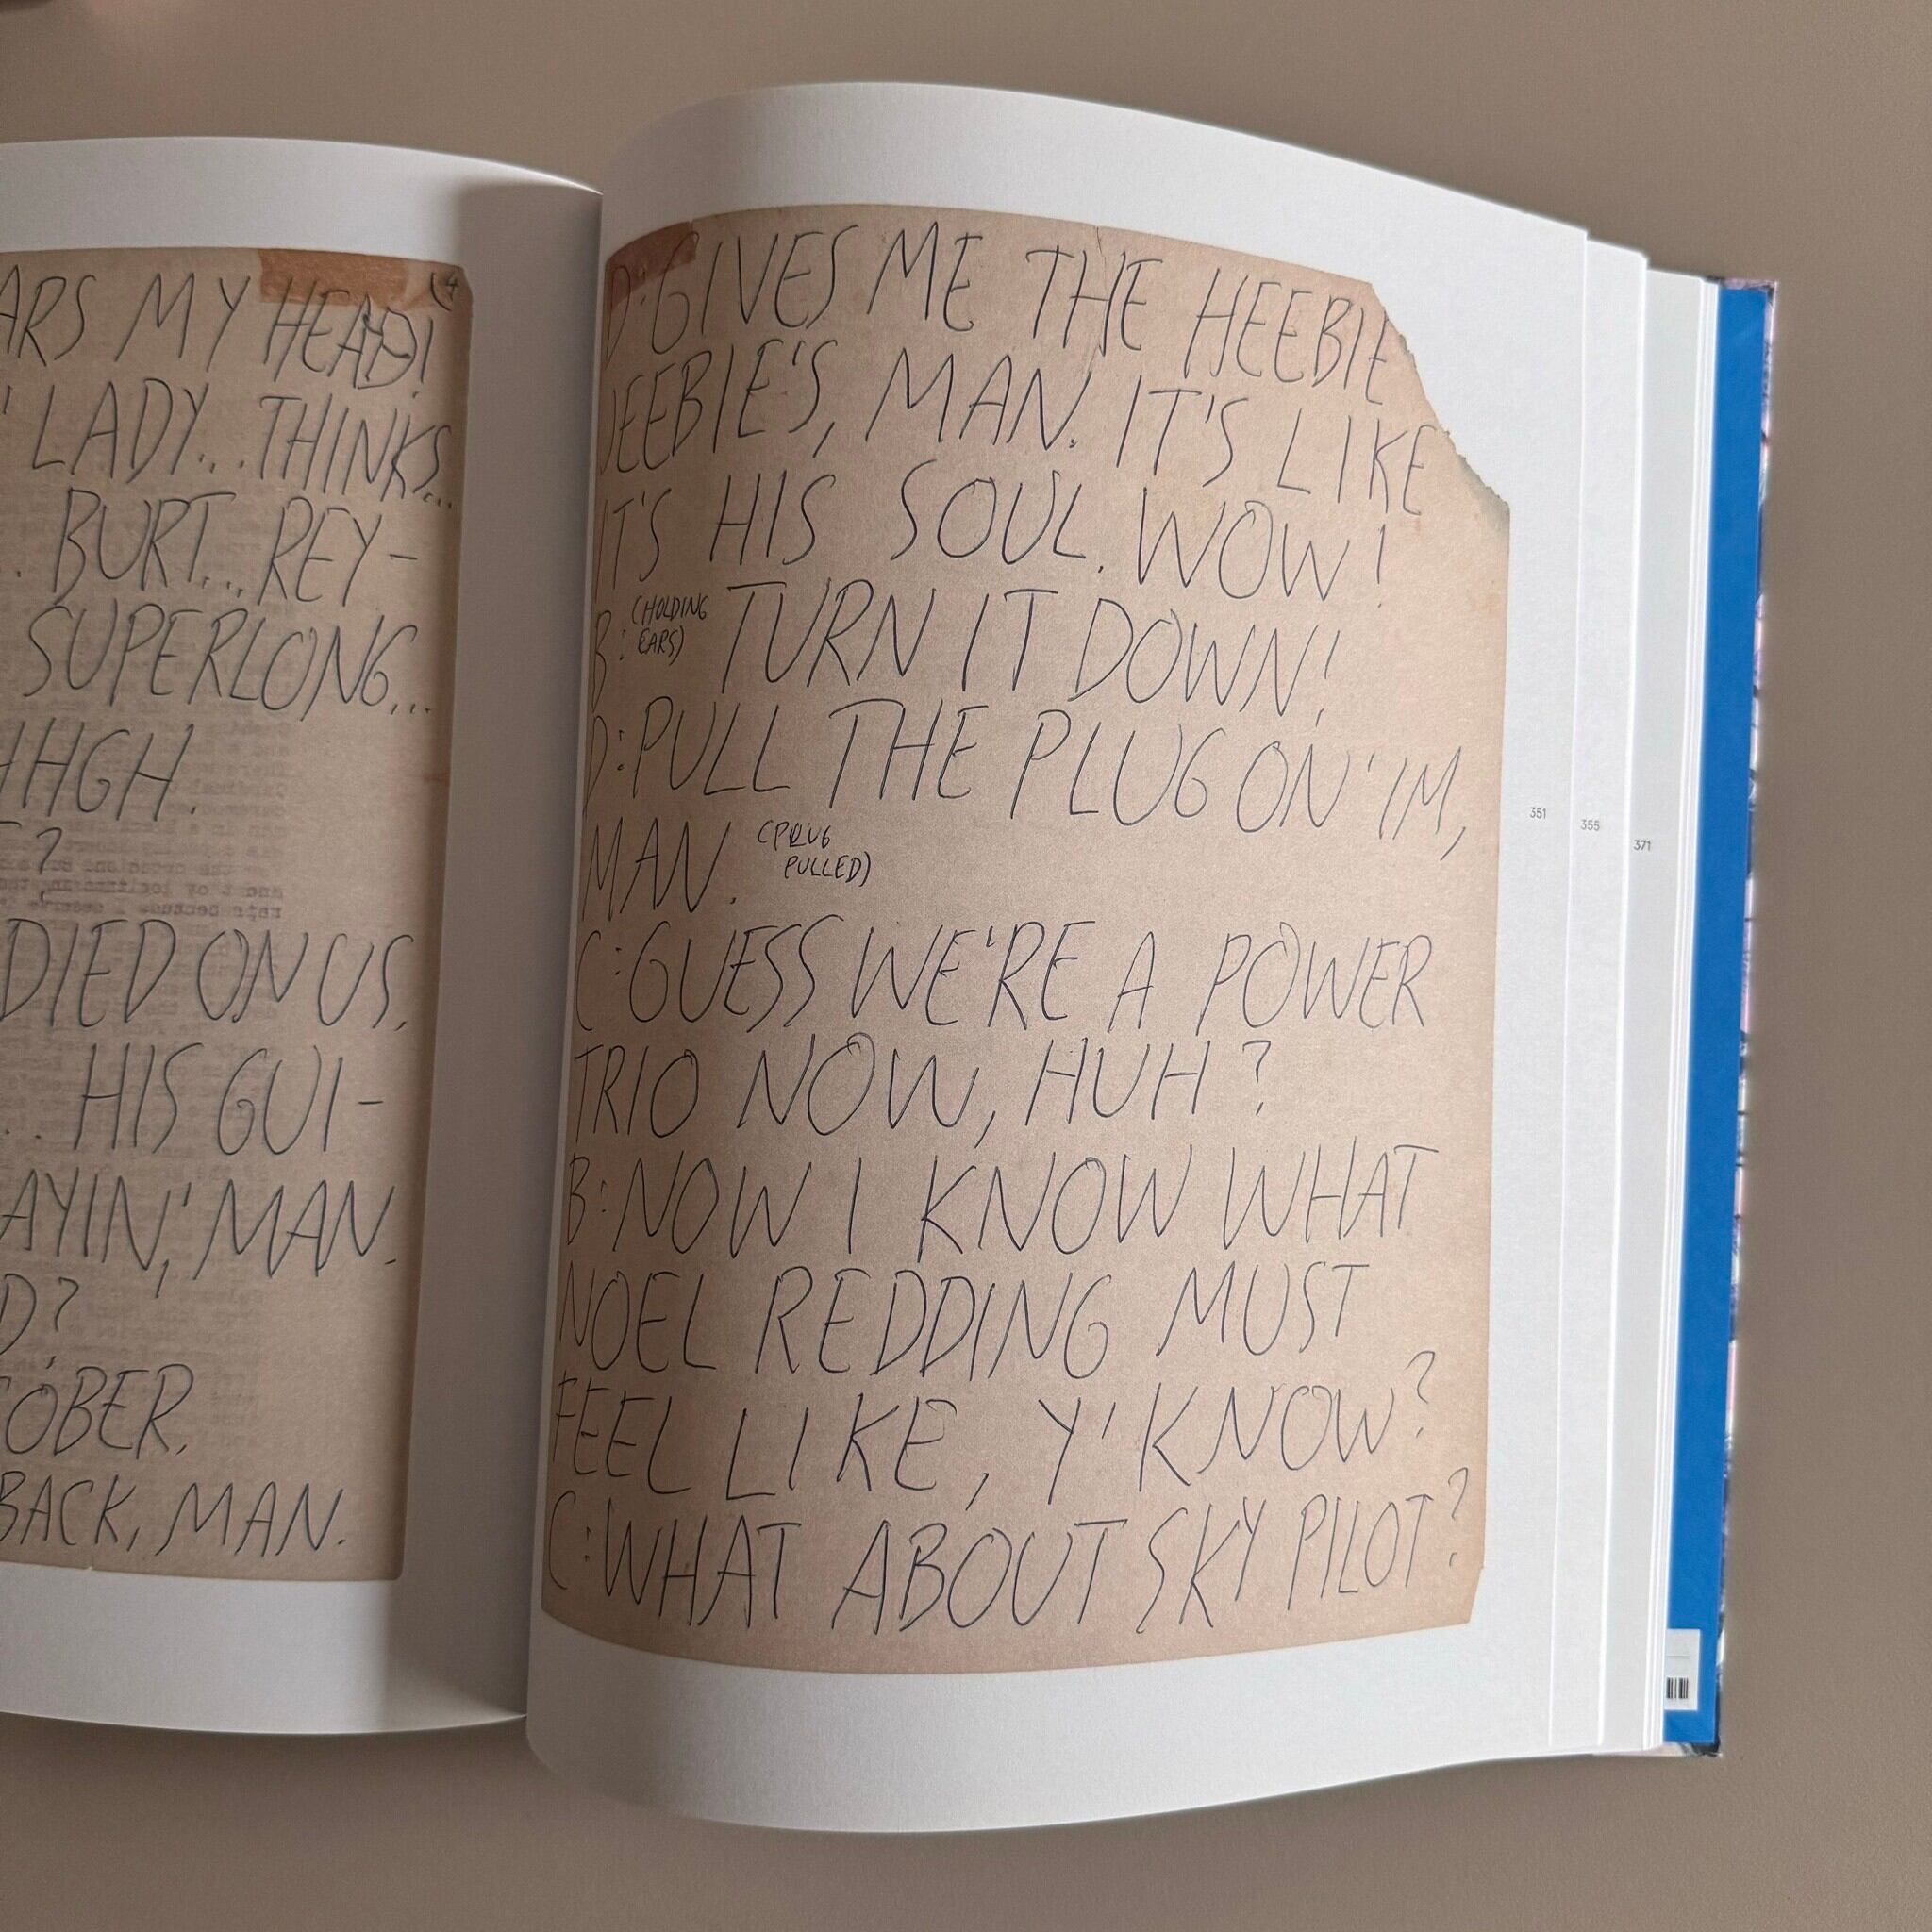 ARS MY HEAD!
' LADY... THINKS...
. BURT... REY-
SUPERLONG...
HHGH.
?
DIED ON US,
.. HIS GUI-
AYIN,' MAN.
D?
OBER.
BACK, MAN.
D: GIVES ME THE HEEBIE
JEEBIE'S, MAN. IT'S LIKE
IT'S HIS SOUL. WOW!
B: (HOLDING EARS) TURN IT DOWN!
D: PULL THE PLUG ON 'IM,
MAN. (PRUG PULLED)
C: GUESS WE'RE A POWER
TRIO NOW, HUH?
B: NOW I KNOW WHAT
NOEL REDDING MUST
FEEL LIKE, Y'KNOW?
C: WHAT ABOUT SKY PILOT?
351
355
371